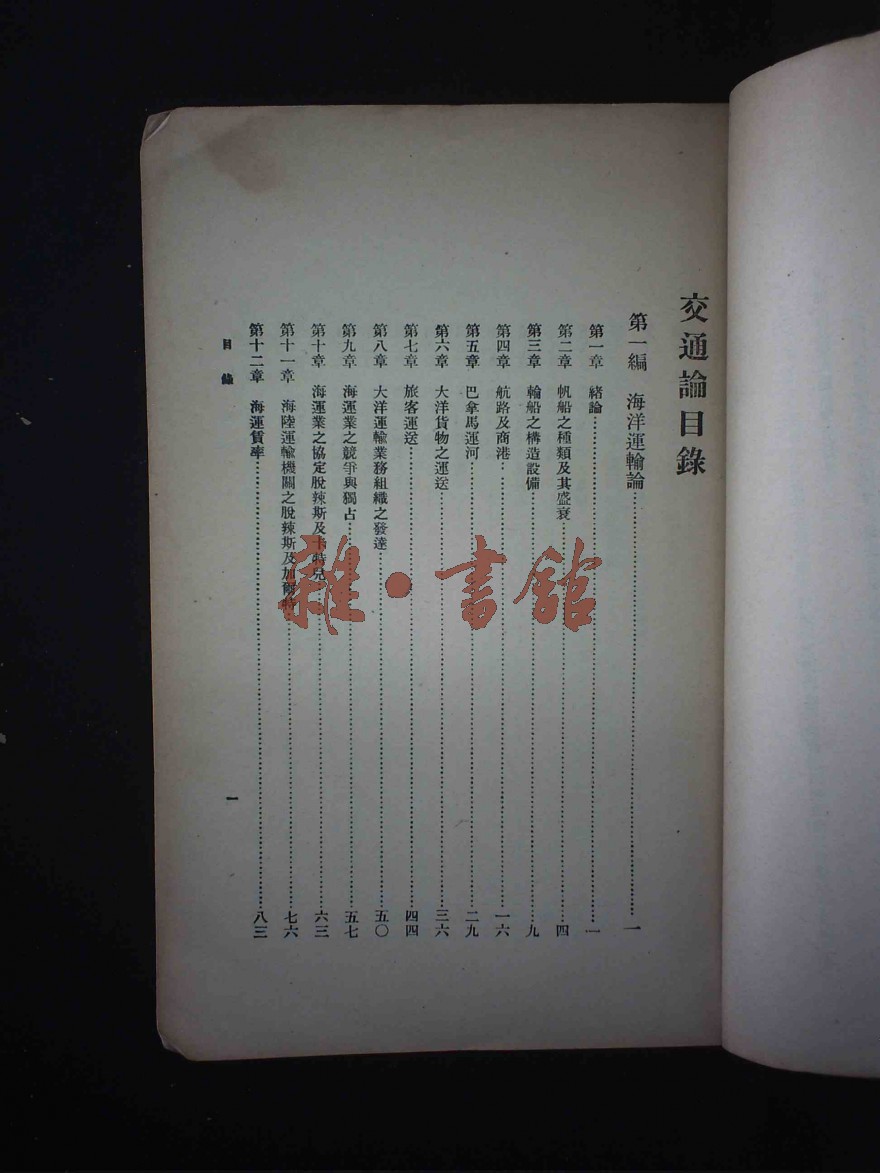 交通論目錄
第一編 海洋運輸論……一
第一章 緒論……一
第二章 帆船之種類及其盛衰……四
第三章 輪船之構造設備……九
第四章 航路及商港……一六
第五章 巴拿馬運河……二九
第六章 大洋貨物之運送……三六
第七章 旅客運送……四四
第八章 大洋運輸業務組織之發達……五〇
第九章 海運業之競爭與獨占……五七
第十章 海運業之協定脫辣斯及卡特兒……六三
第十一章 海陸運輸機關之脫辣斯及加爾特……七六
第十二章 海運賃率……八三
目錄
一
雜·書館